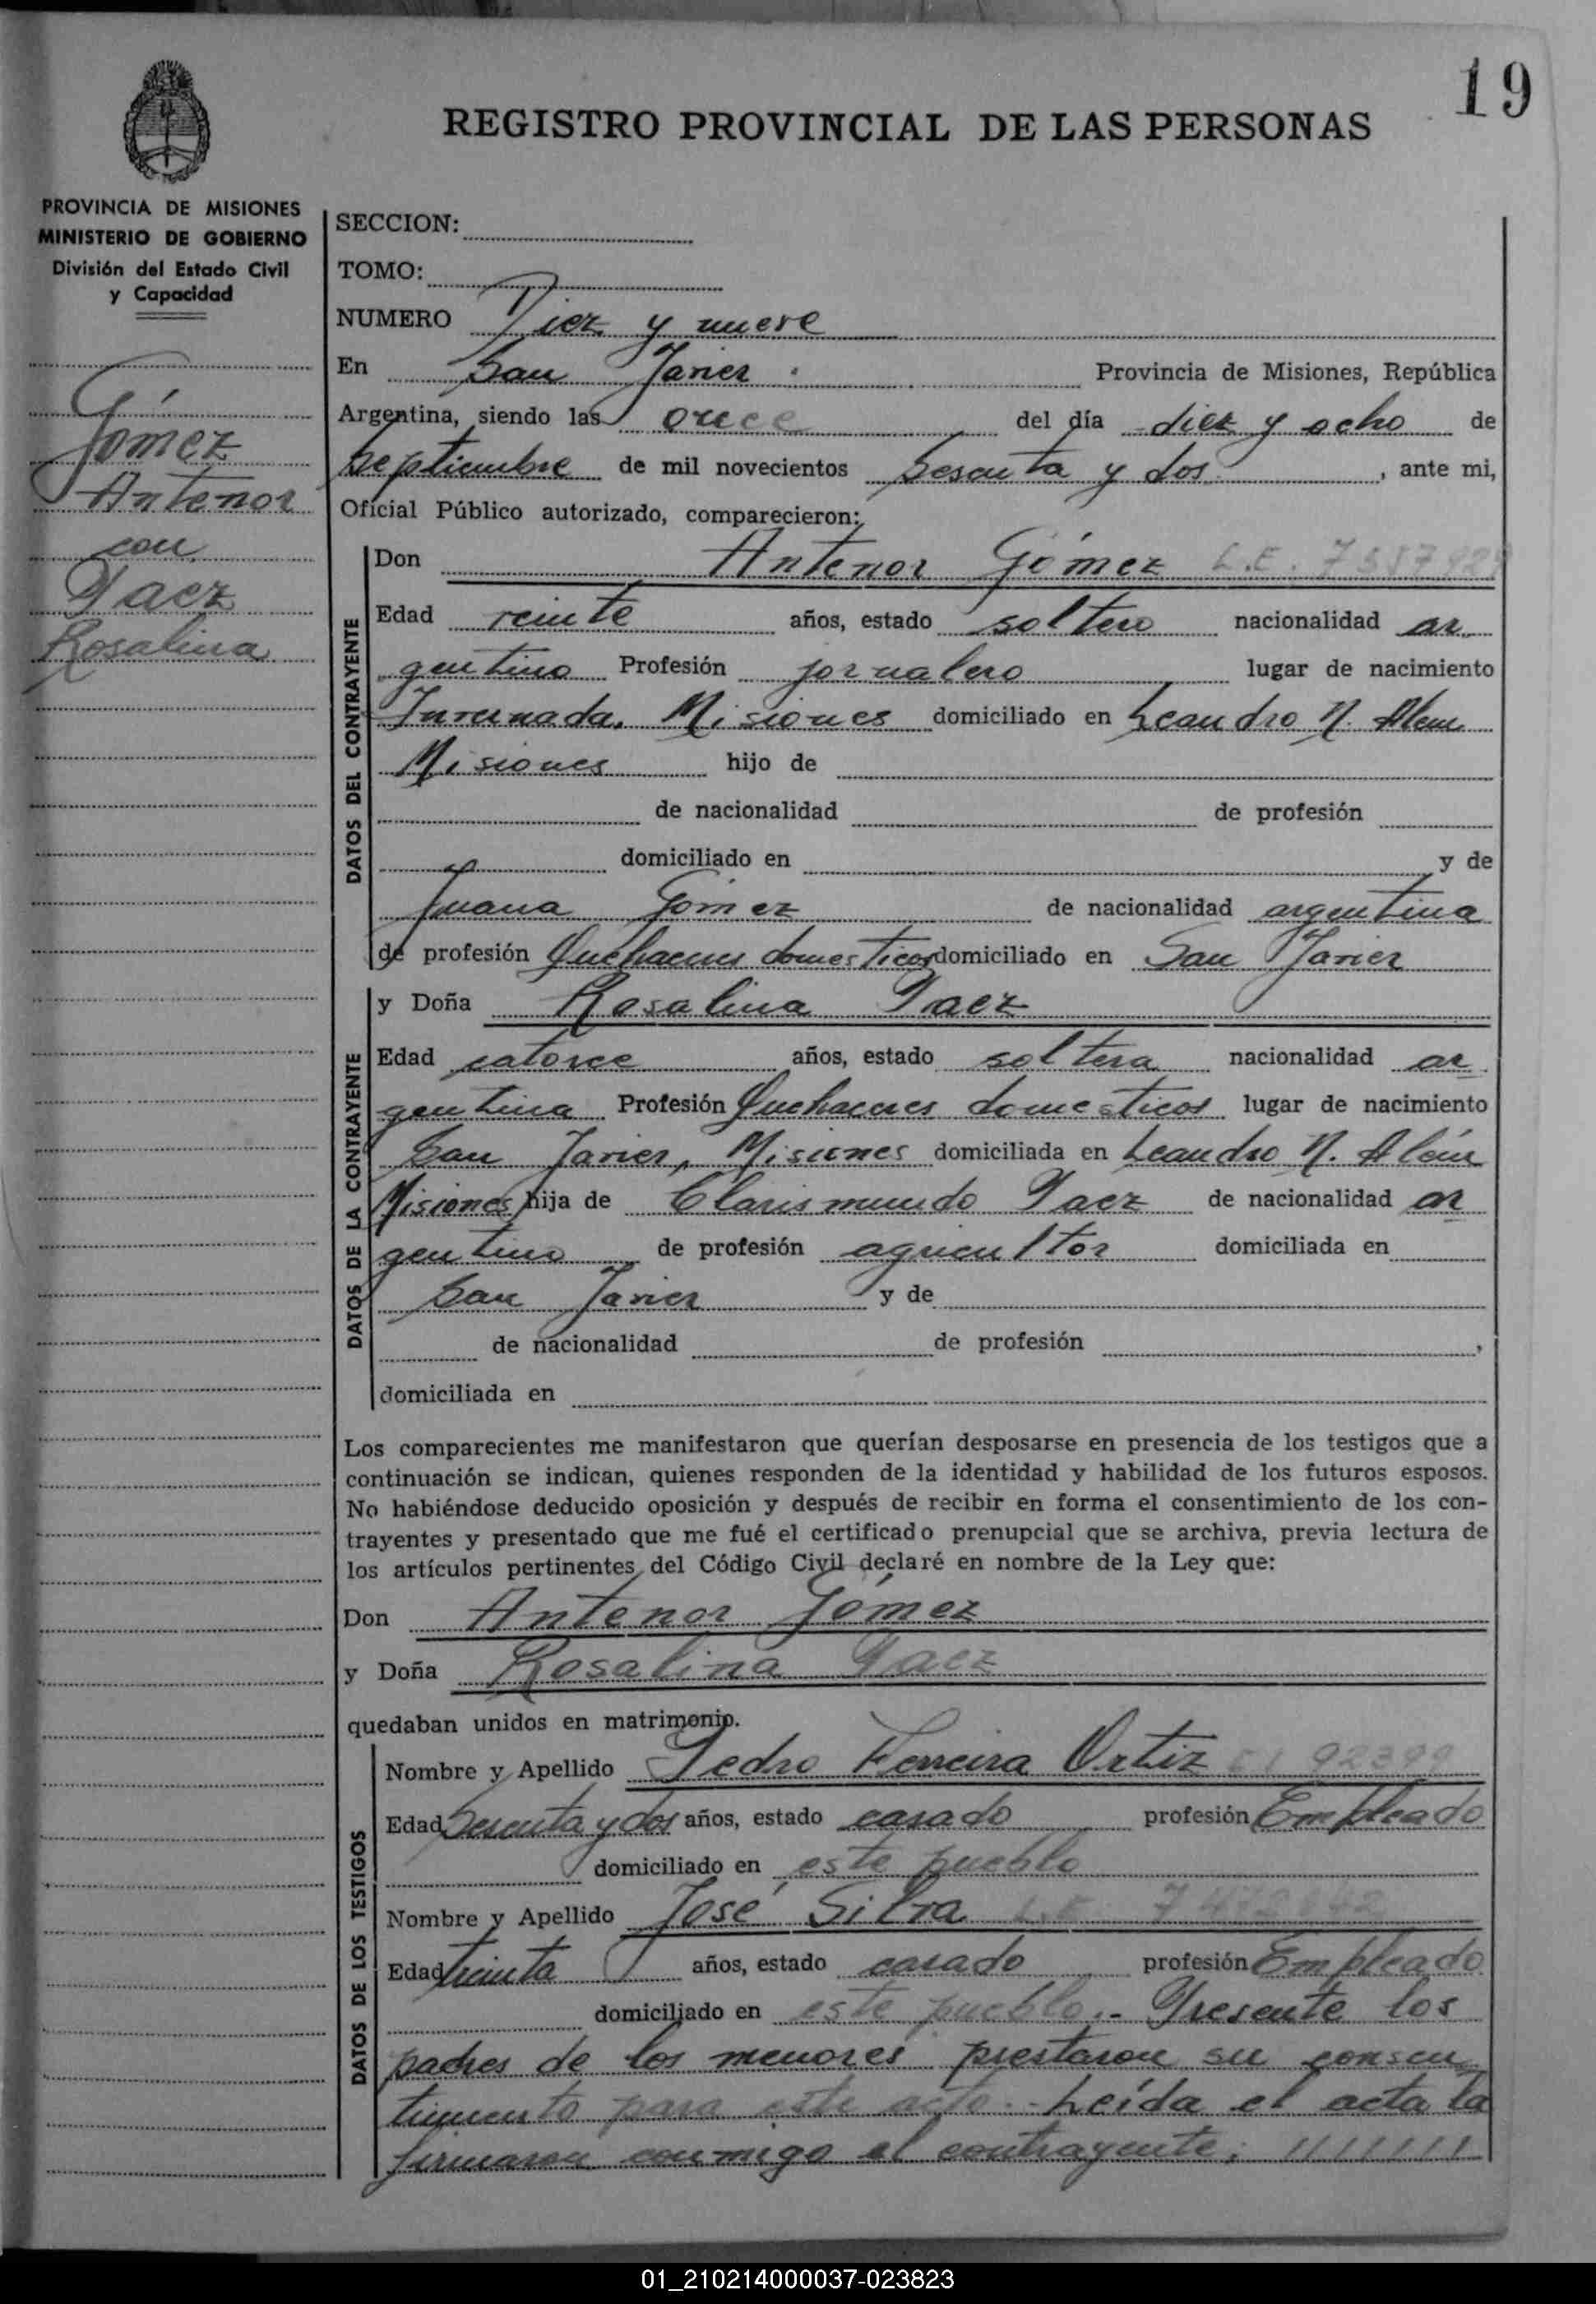 19
REGISTRO PROVINCIAL DE LAS PERSONAS
PROVINCIA DE MISIONES
MINISTERIO DE GOBIERNO
División del Estado Civil
y Capacidad
Gómez
Antenor
con
Paez
Rosalina
SECCION:
TOMO:
NUMERO Diez y nueve
En San Javier. Provincia de Misiones, República
Argentina, siendo las once del día diez y ocho de
Septiembre de mil novecientos Sesenta y dos, ante mi,
Oficial Público autorizado, comparecieron:
DATOS DEL CONTRAYENTE
Don Antenor Gómez L.E.
Edad veinte años, estado soltero nacionalidad ar
gentino Profesión jornalero lugar de nacimiento
Invernada, Misiones domiciliado en Leandro N. Alem
Misiones hijo de
de nacionalidad de profesión
domiciliado en y de
Juana Gómez de nacionalidad argentina
de profesión Quehaceres domesticos domiciliado en San Javier
DATOS DE LA CONTRAYENTE
y Doña Rosalina Paez
Edad catorce años, estado soltera nacionalidad ar
gentina Profesión Quehaceres domesticos lugar de nacimiento
San Javier, Misiones domiciliada en Leandro N. Além
Misiones hija de Clarismundo Paez de nacionalidad ar
gentino de profesión agricultor domiciliada en
San Javier y de
de nacionalidad de profesión ,
domiciliada en
Los comparecientes me manifestaron que querían desposarse en presencia de los testigos que a
continuación se indican, quienes responden de la identidad y habilidad de los futuros esposos.
No habiéndose deducido oposición y después de recibir en forma el consentimiento de los con-
trayentes y presentado que me fué el certificado prenupcial que se archiva, previa lectura de
los artículos pertinentes del Código Civil declaré en nombre de la Ley que:
Don Antenor Gómez
y Doña Rosalina Paez
quedaban unidos en matrimonio.
DATOS DE LOS TESTIGOS
Nombre y Apellido Pedro Ferreira Ortiz
Edad Sesenta y dos años, estado casado profesión Empleado
domiciliado en este pueblo
Nombre y Apellido José Silva L.E.
Edad treinta años, estado casado profesión Empleado
domiciliado en este pueblo.- Presente los
padres de los menores prestaron su consen
timiento para este acto.- Leída el acta la
firmaron conmigo el contrayente;
01_210214000037-023823